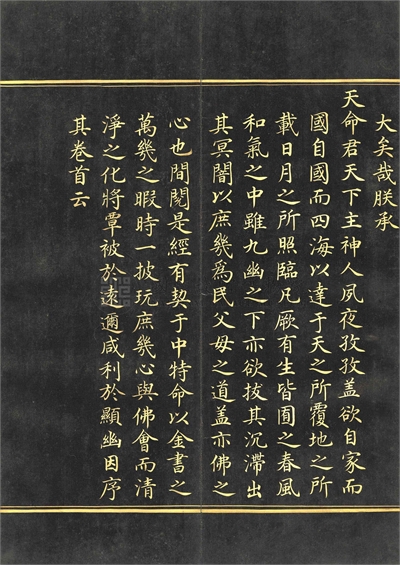 大矣哉朕承
天命君天下主神人夙夜孜孜盖欲自家而
國自國而四海以達于天之所覆地之所
載日月之所照臨凡厥有生皆囿之春風
和氣之中雖九幽之下亦欲拔其沉滯出
其冥闇以庶幾為民父母之道盖亦佛之
心也間閱是經有契于中特命以金書之
萬幾之暇時一披玩庶幾心與佛會而清
淨之化將覃被於遠邇咸利於顯幽因序
其卷首云